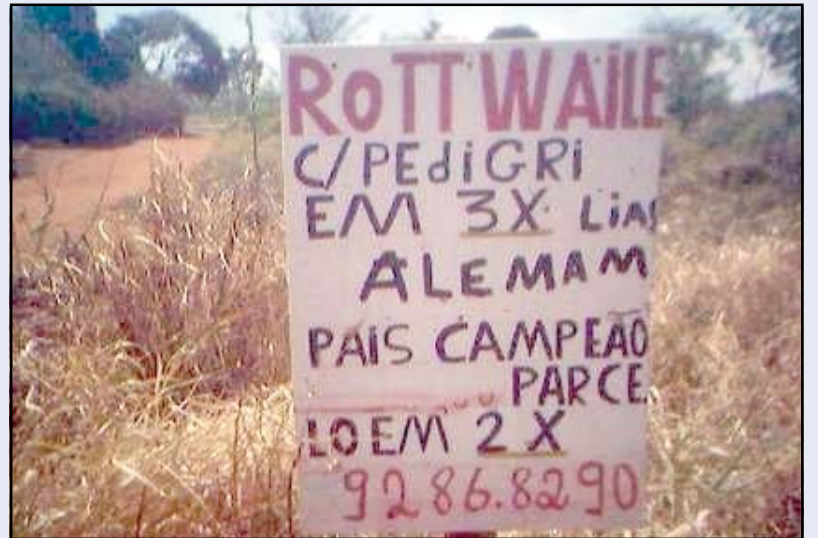 ROTTWAILE
C/PEdiGRi
EM 3X LiAS
ALEMAM
PAIS CAMPEÃO
PARCE
LO EM 2X
9286.8290